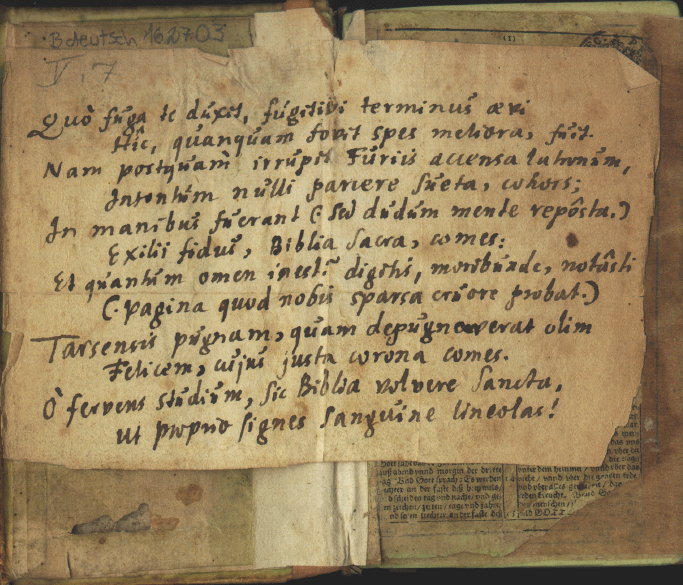 B deutsch 1627 03
V, 7
(1)
Quò fuga te duxit, fugitivi terminus ævi
Hîc, quanquam fovit spes meliora, fuit.
Nam postquam irrupit Furiis accensa latronum,
Intentùm nulli parcere sueta, cohors;
In manibus fuerant (: sed dudum mente repôsta.)
Exilii fidus, Biblia Sacra, comes:
Et quantùm omen inest! digitis, moribunde, notâsti
(: pagina quod nobis sparsa cruore probat.)
Tarsensis pugnam, quam depugnaverat olim
Felicem, cujus justa corona comes.
Ô fervens studium, sic Biblia volvere Sancta,
ut proprio signes sanguine lineolas!